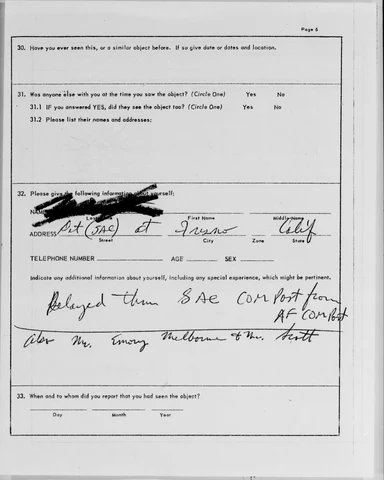 Page 6
30. Have you ever seen this, or a similar object before. If so give date or dates and location.
31. Was anyone else with you at the time you saw the object? (Circle One) Yes No
31.1 IF you answered YES, did they see the object too? (Circle One) Yes No
31.2 Please list their names and addresses:
32. Please give the following information about yourself:
NAME
Last First Name Middle Name
ADDRESS Det (SAC) at Fresno Calif
Street City Zone State
TELEPHONE NUMBER AGE SEX
Indicate any additional information about yourself, including any special experience, which might be pertinent.
Relayed thru SAC Com Post from
AF Com Post
also Mr. Emory Melbourne & Mr. Scott
33. When and to whom did you report that you had seen the object?
Day Month Year